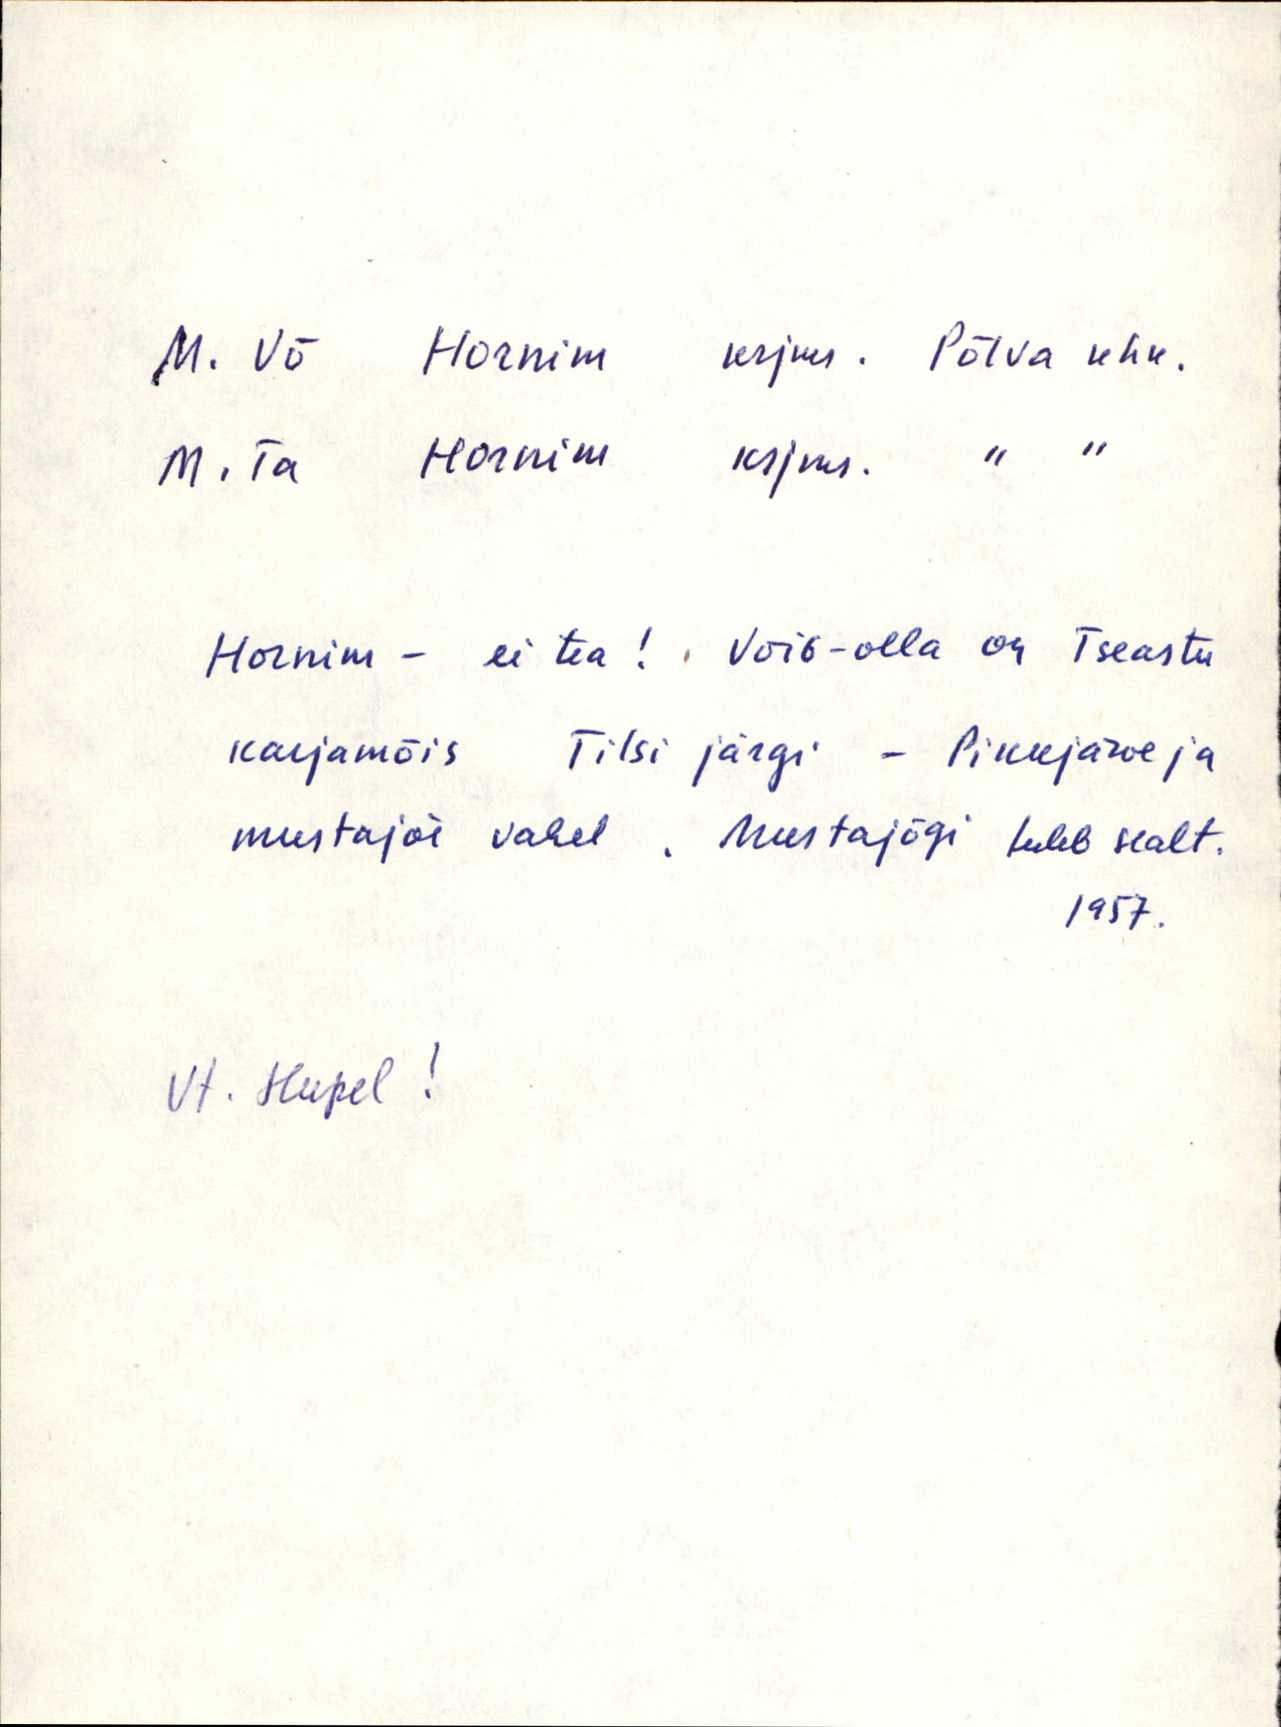 M. Võ Hornim krjms. Põlva khk.
M. Ta Hornim krjms. " "
Hornim - ei tea! Võib-olla on Tseastu
karjamõis Tilsi järgi - Pikkjärve ja
mustajõe vahel. Mustajõgi tuleb sealt.
1957.
Vt. Hupel!